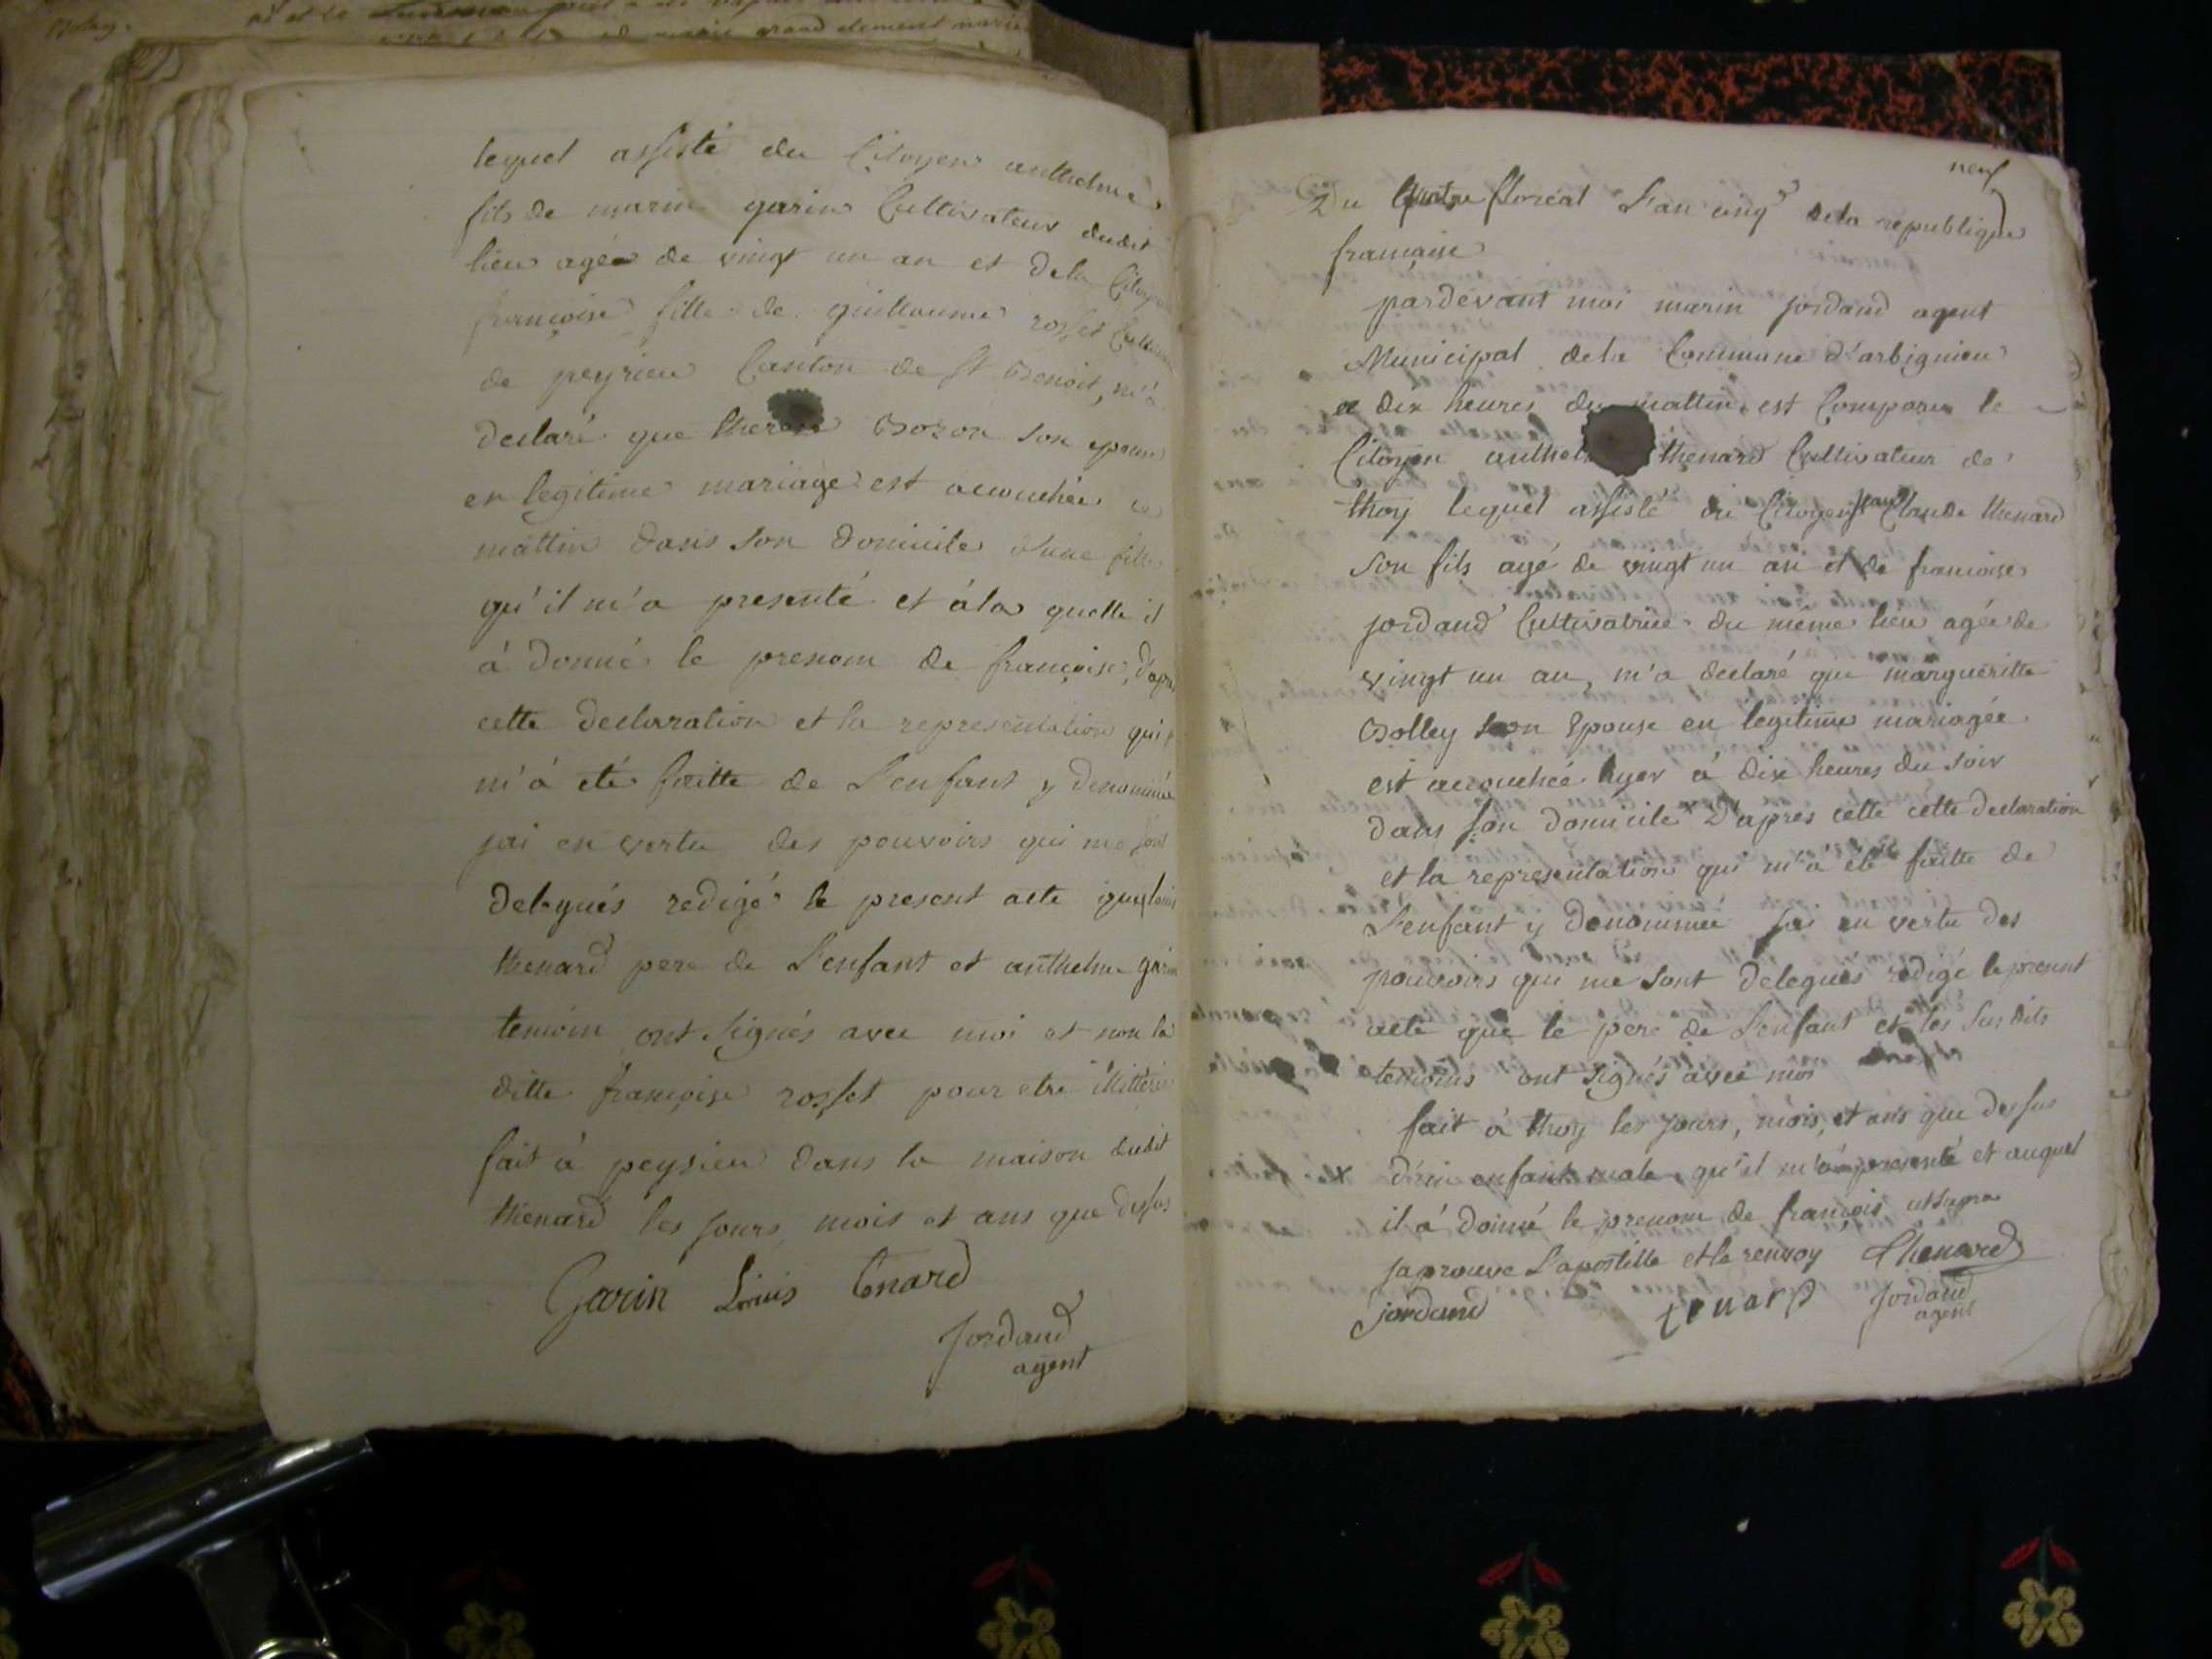 grand clement marie
lequel assisté du Citoyen anthelme
fils de marin garin Cultivateur dudit
lieu agée de vingt un an et dela Citoyenne
françoise fille de guillaume rosset
de peyrieu Canton de St Benoit, m'a
declaré que therese Bozon son epouse
en legitime mariage est acouchée ce
mattin dans son domicile d'une fille
qu'il m'a presenté et àla quelle il
à donné le prenom de françoise, d'apres
cette declaration et la representation qui
m'à eté faitte de L'enfant y denommée
jai en vertu des pouvoirs qui me sont
delegués redigé le present acte que louis
thenard pere de L'enfant et anthelme garin
temoin ont signés avec moi et non la
ditte françoise rosset pour etre illitéré
fait à peyrieu dans la maison dudit
thenard les jours, mois et ans que dessus
Garin Louis tenard
Jordand
agent
neuf
Du quatre floréal L'an cinq dela republique
française
pardevant moi marin jordand agent
Municipal dela Commune d'arbignieu
a dix heures du mattin est Comparu le
Citoyen anthel thenard Cultivateur de
thoy lequel assisté du Citoyen jean Claude thenard
son fils agé de vingt un an et de francoise
jordand Cultivatrice du même lieu agée de
vingt un an, m'a declaré que margueritte
Bolley son Epouse en legitime mariagée
est acouchée hyer à dix heures du soir
dans son domicile x D'apres cette cette declaration
et la representation qui m'à été faitte de
L'enfant y denommée jai en vertu des
pouvoirs qui me sont delegués redigé le present
acte que le pere de L'enfant et les susdits
temoins ont signés avec moi
fait à thoy les jours, mois, et ans que dessus
x d'un enfant male, qu'il m'à presenté et auquel
il à donné le prenom de françois utsupra
japrouve L'apostille et le renvoy thenard
jordand tenard Jordand
agent